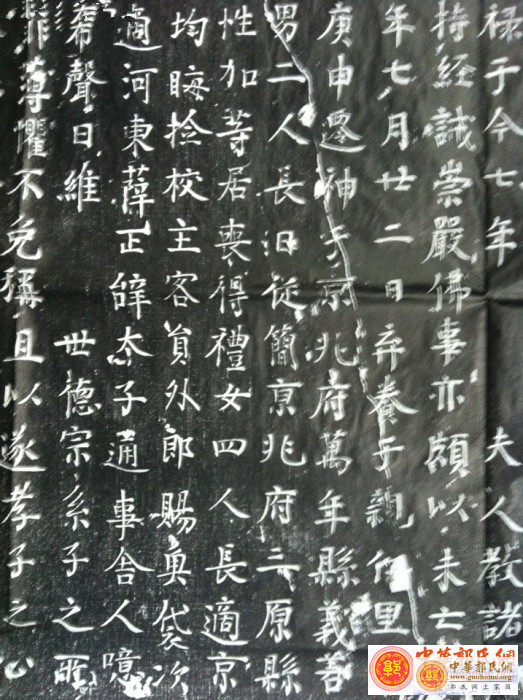 禄于今七年 夫人教諸
持經誠崇嚴佛事亦頗以未亡
年七月廿二日弃養于親仁里
庚申遷神于京兆府萬年縣義善
男二人長曰從簡京兆府三原縣
性加等居喪得禮女四人長適京
均晦捡校主客負外郎賜魚袋次
適河東薛正辞太子通事舍人噫
希聲曰維 世德宗系子之
菲薄懼不免稱且以遂孝子之心
中華郭氏網
中華郭氏網
www.guohome.org
郭氏網上家園